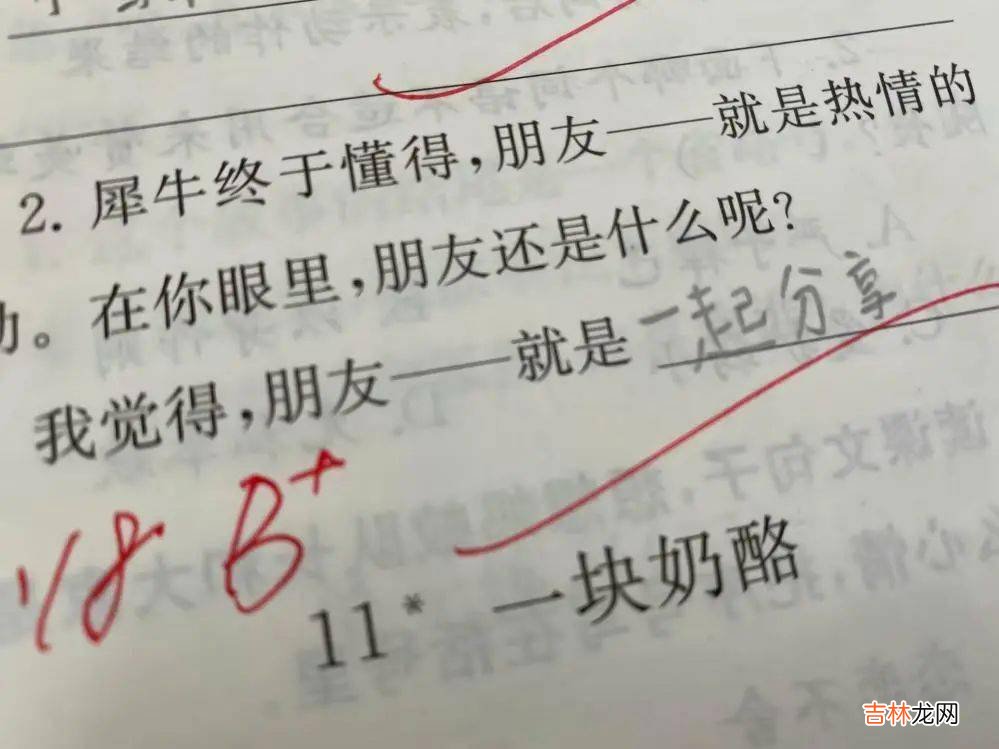 2. 犀牛终于懂得,朋友——就是热情的
。在你眼里,朋友还是什么呢?
我觉得,朋友——就是一起分享
1/8 B+
11* 一块奶酪
吉林龙网